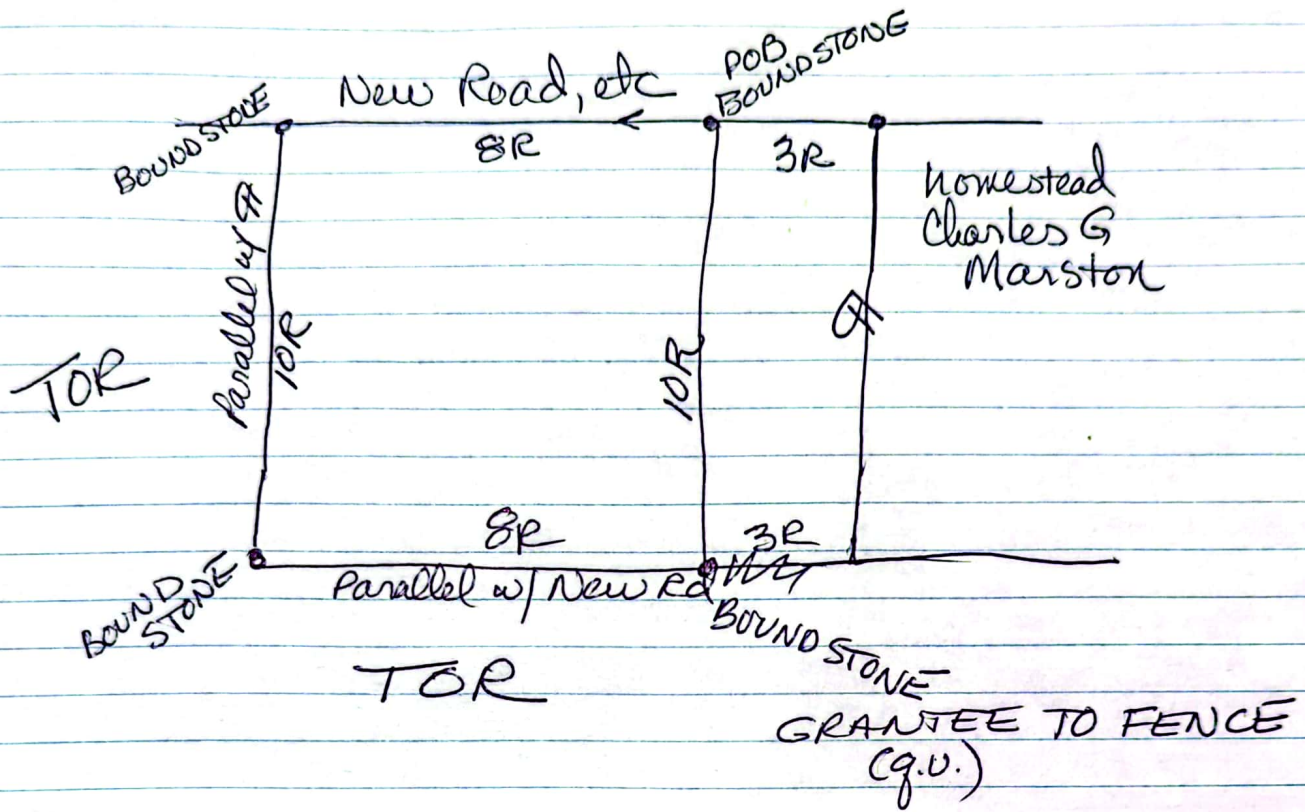 New Road, etc
POB
BOUNDSTONE
BOUNDSTONE
8R
3R
Homestead
Charles G
Marston
Parallel w/
10R
10R
TOR
8R
3R
Parallel w/ New Rd
BOUND
STONE
BOUNDSTONE
TOR
GRANTEE TO FENCE
(q.v.)